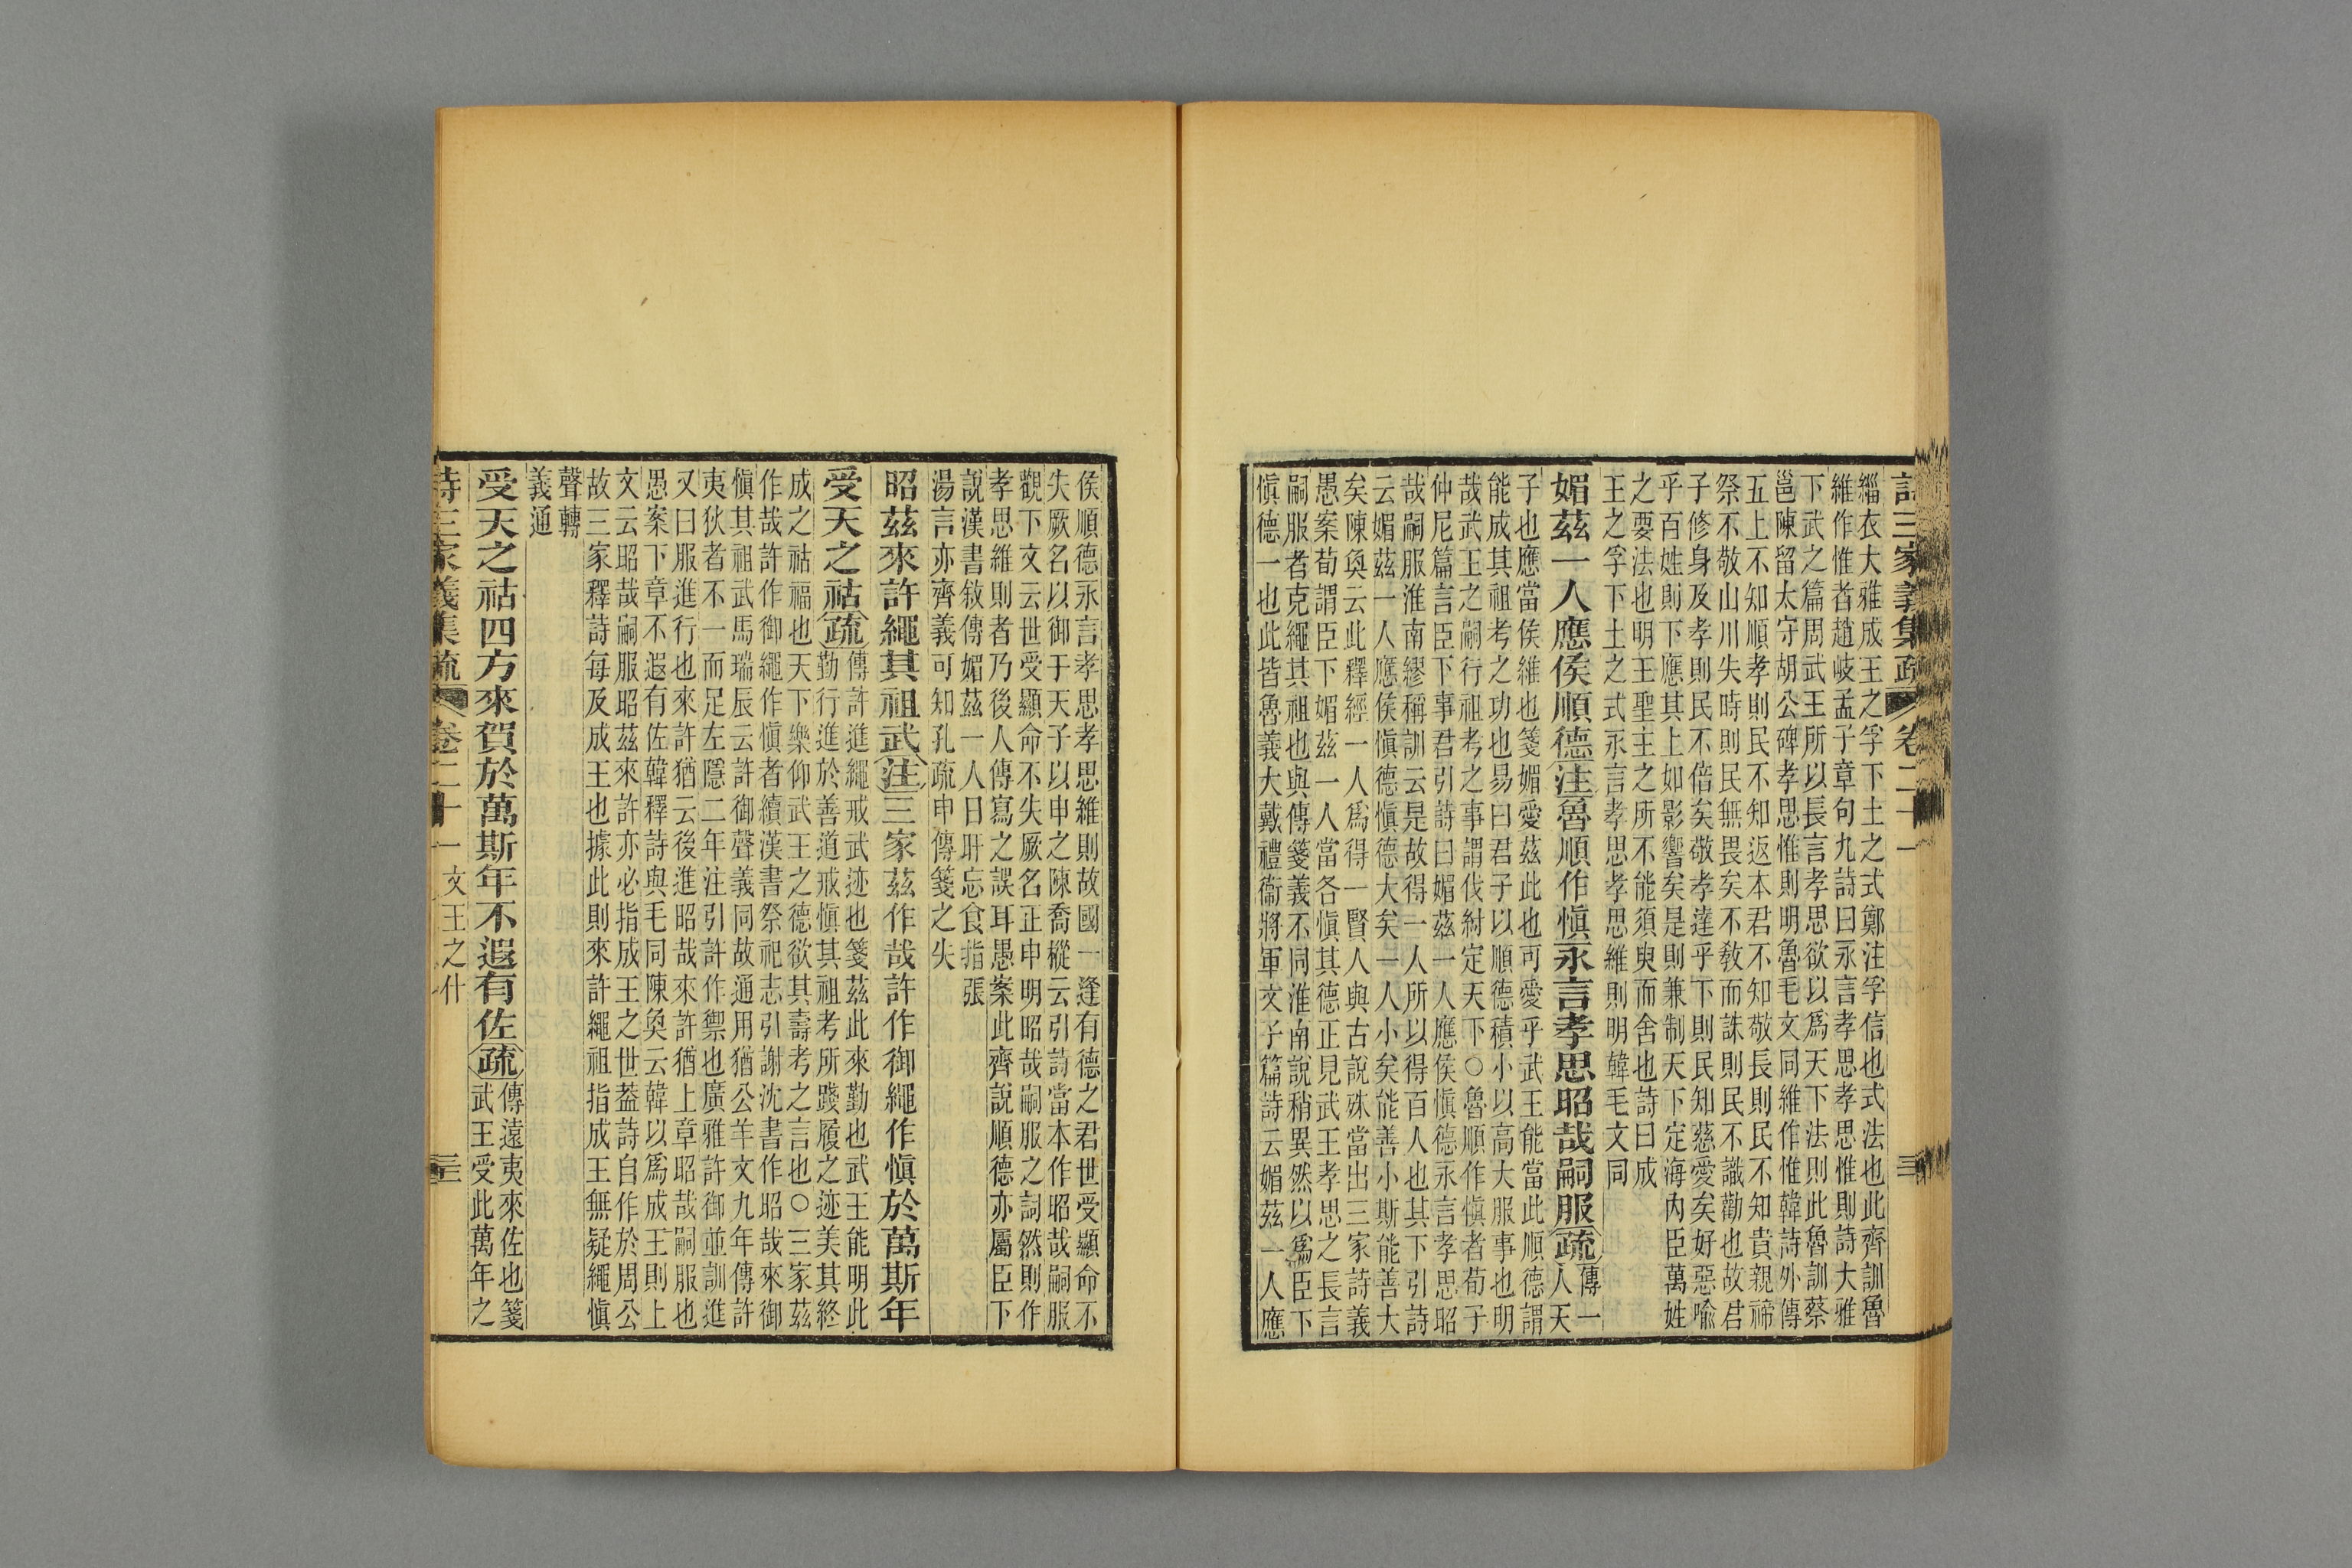 詩三家義集疏 卷二十一
緇衣大雅成王之孚下土之式鄭注孚信也式法也此齊訓魯
維作惟者趙岐孟子章句九詩曰永言孝思孝思惟則詩大雅
下武之篇周武王所以長言孝思欲以爲天下法則此魯訓蔡
邕陳留太守胡公碑孝思惟則明魯毛文同維作惟韓詩外傳
五上不知順孝則民不知返本君不知敬長則民不知貴親禘
祭不敬山川失時則民無畏矣不教而誅則民不識勸也故君
子修身及孝則民不倍矣敬孝達乎下則民知慈愛矣好惡喻
乎百姓則下應其上如影響矣是則兼制天下定海內臣萬姓
之要法也明王聖主之所不能須臾而舍也詩曰成
王之孚下土之式永言孝思孝思維則明韓毛文同
媚茲一人應侯順德注魯順作愼永言孝思昭哉嗣服疏傳一
人天
子也應當侯維也箋媚愛茲此也可愛乎武王能當此順德謂
能成其祖考之功也易曰君子以順德積小以高大服事也明
哉武王之嗣行祖考之事謂伐紂定天下○魯順作愼者荀子
仲尼篇言臣下事君引詩曰媚茲一人應侯愼德永言孝思昭
哉嗣服淮南繆稱訓云是故得一人所以得百人也其下引詩
云媚茲一人應侯愼德愼德大矣一人小矣能善小斯能善大
矣陳奐云此釋經一人爲得一賢人與古說殊當出三家詩義
愚案荀謂臣下媚茲一人當各愼其德正見武王孝思之長言
嗣服者克繩其祖也與傳箋義不同淮南說稍異然以爲臣下
愼德一也此皆魯義大戴禮衞將軍文子篇詩云媚茲一人應
侯順德永言孝思孝思維則故國一逢有德之君世受顯命不
失厥名以御于天子以申之陳喬樅云引詩當本作昭哉嗣服
觀下文云世受顯命不失厥名正申明昭哉嗣服之詞然則作
孝思維則者乃後人傳寫之誤耳愚案此齊說順德亦屬臣下
說漢書敘傳媚茲一人日旰忘食指張
湯言亦齊義可知孔疏申傳箋之失
昭茲來許繩其祖武注三家茲作哉許作御繩作愼於萬斯年
受天之祜疏傳許進繩戒武迹也箋茲此來勤也武王能明此
勤行進於善道戒愼其祖考所踐履之迹美其終
成之祜福也天下樂仰武王之德欲其壽考之言也○三家茲
作哉許作御繩作愼者續漢書祭祀志引謝沈書作昭哉來御
愼其祖武馬瑞辰云許御聲義同故通用猶公羊文九年傳許
夷狄者不一而足左隱二年注引許作禦也廣雅許御並訓進
又曰服進行也來許猶云後進昭哉來許猶上章昭哉嗣服也
愚案下章不遐有佐韓釋詩與毛同陳奐云韓以爲成王則上
文云昭哉嗣服昭茲來許亦必指成王之世葢詩自作於周公
故三家釋詩每及成王也據此則來許繩祖指成王無疑繩愼
聲轉
義通
受天之祜四方來賀於萬斯年不遐有佐疏傳遠夷來佐也箋
武王受此萬年之
詩三家義集疏 卷二十一 文王之什 三